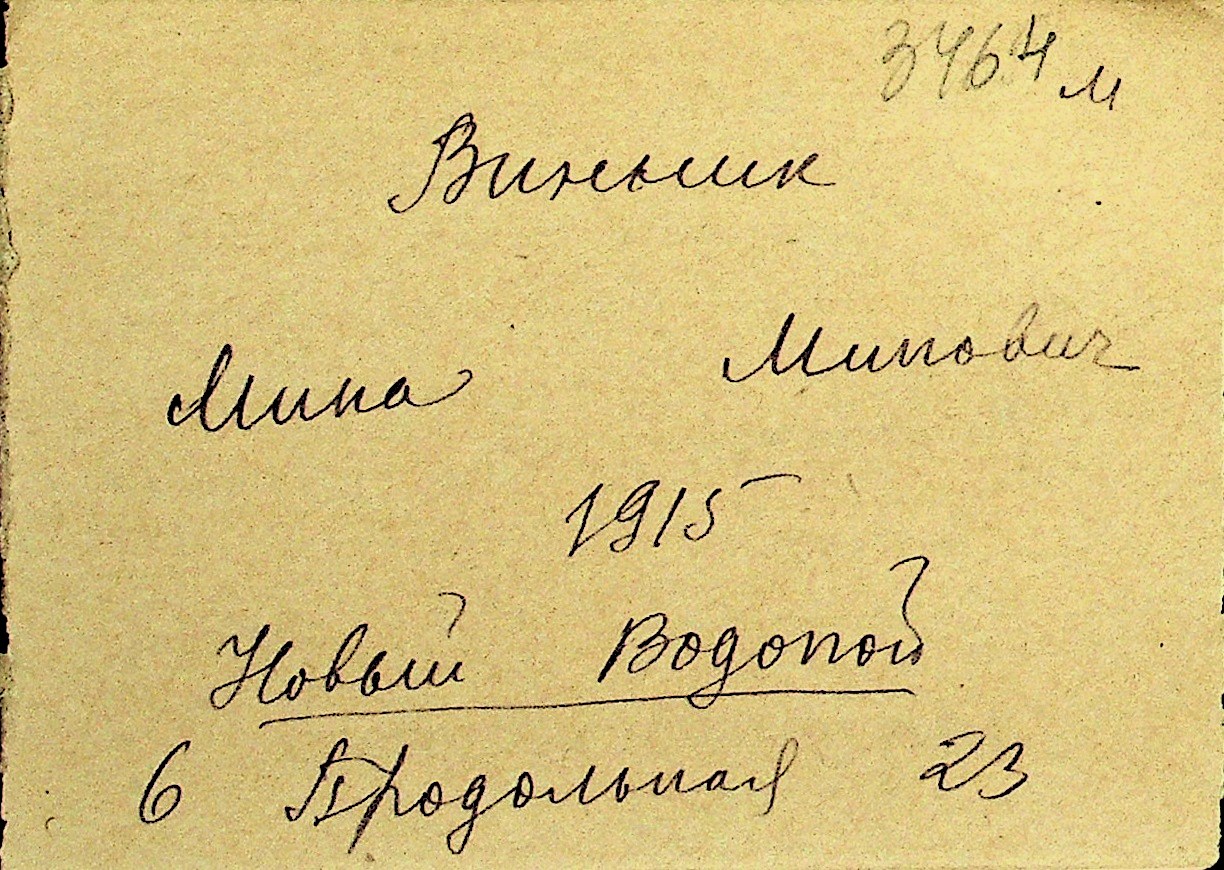 3464 м
Виньник
Мина Минович
1915
Новый Водопой
6 Продольная 23